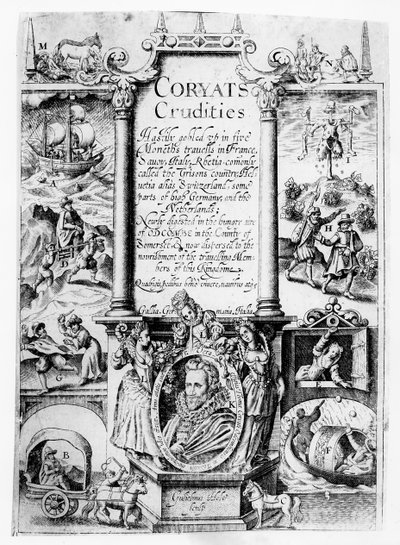 M
N
CORYATS
Crudities
Hastily gobled up in five
Moneths travells in France,
Savoy, Italy, Rhetia comonly
called the Grisons country, Hel-
vetia aliàs Switzerland, some
parts of high Germany, and the
Netherlands;
Newly digested in the hungry aire
of ODCOMBE in the County of
Somerset, & now dispersed to the
nourishment of the travelling Mem-
bers of this Kingdome.
Quadrigis, Navibus
Gallia. Ger mania. Italia.
A
D
H
C
E
B
F
Gulielmus Hole
sculp